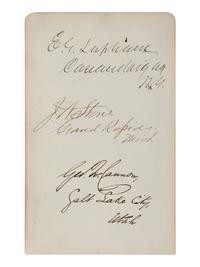 E. G. Lapham
Canandaigua
N.Y.
J W Stone
Grand Rapids
Mich
Geo. Q. Cannon,
Salt Lake City,
Utah